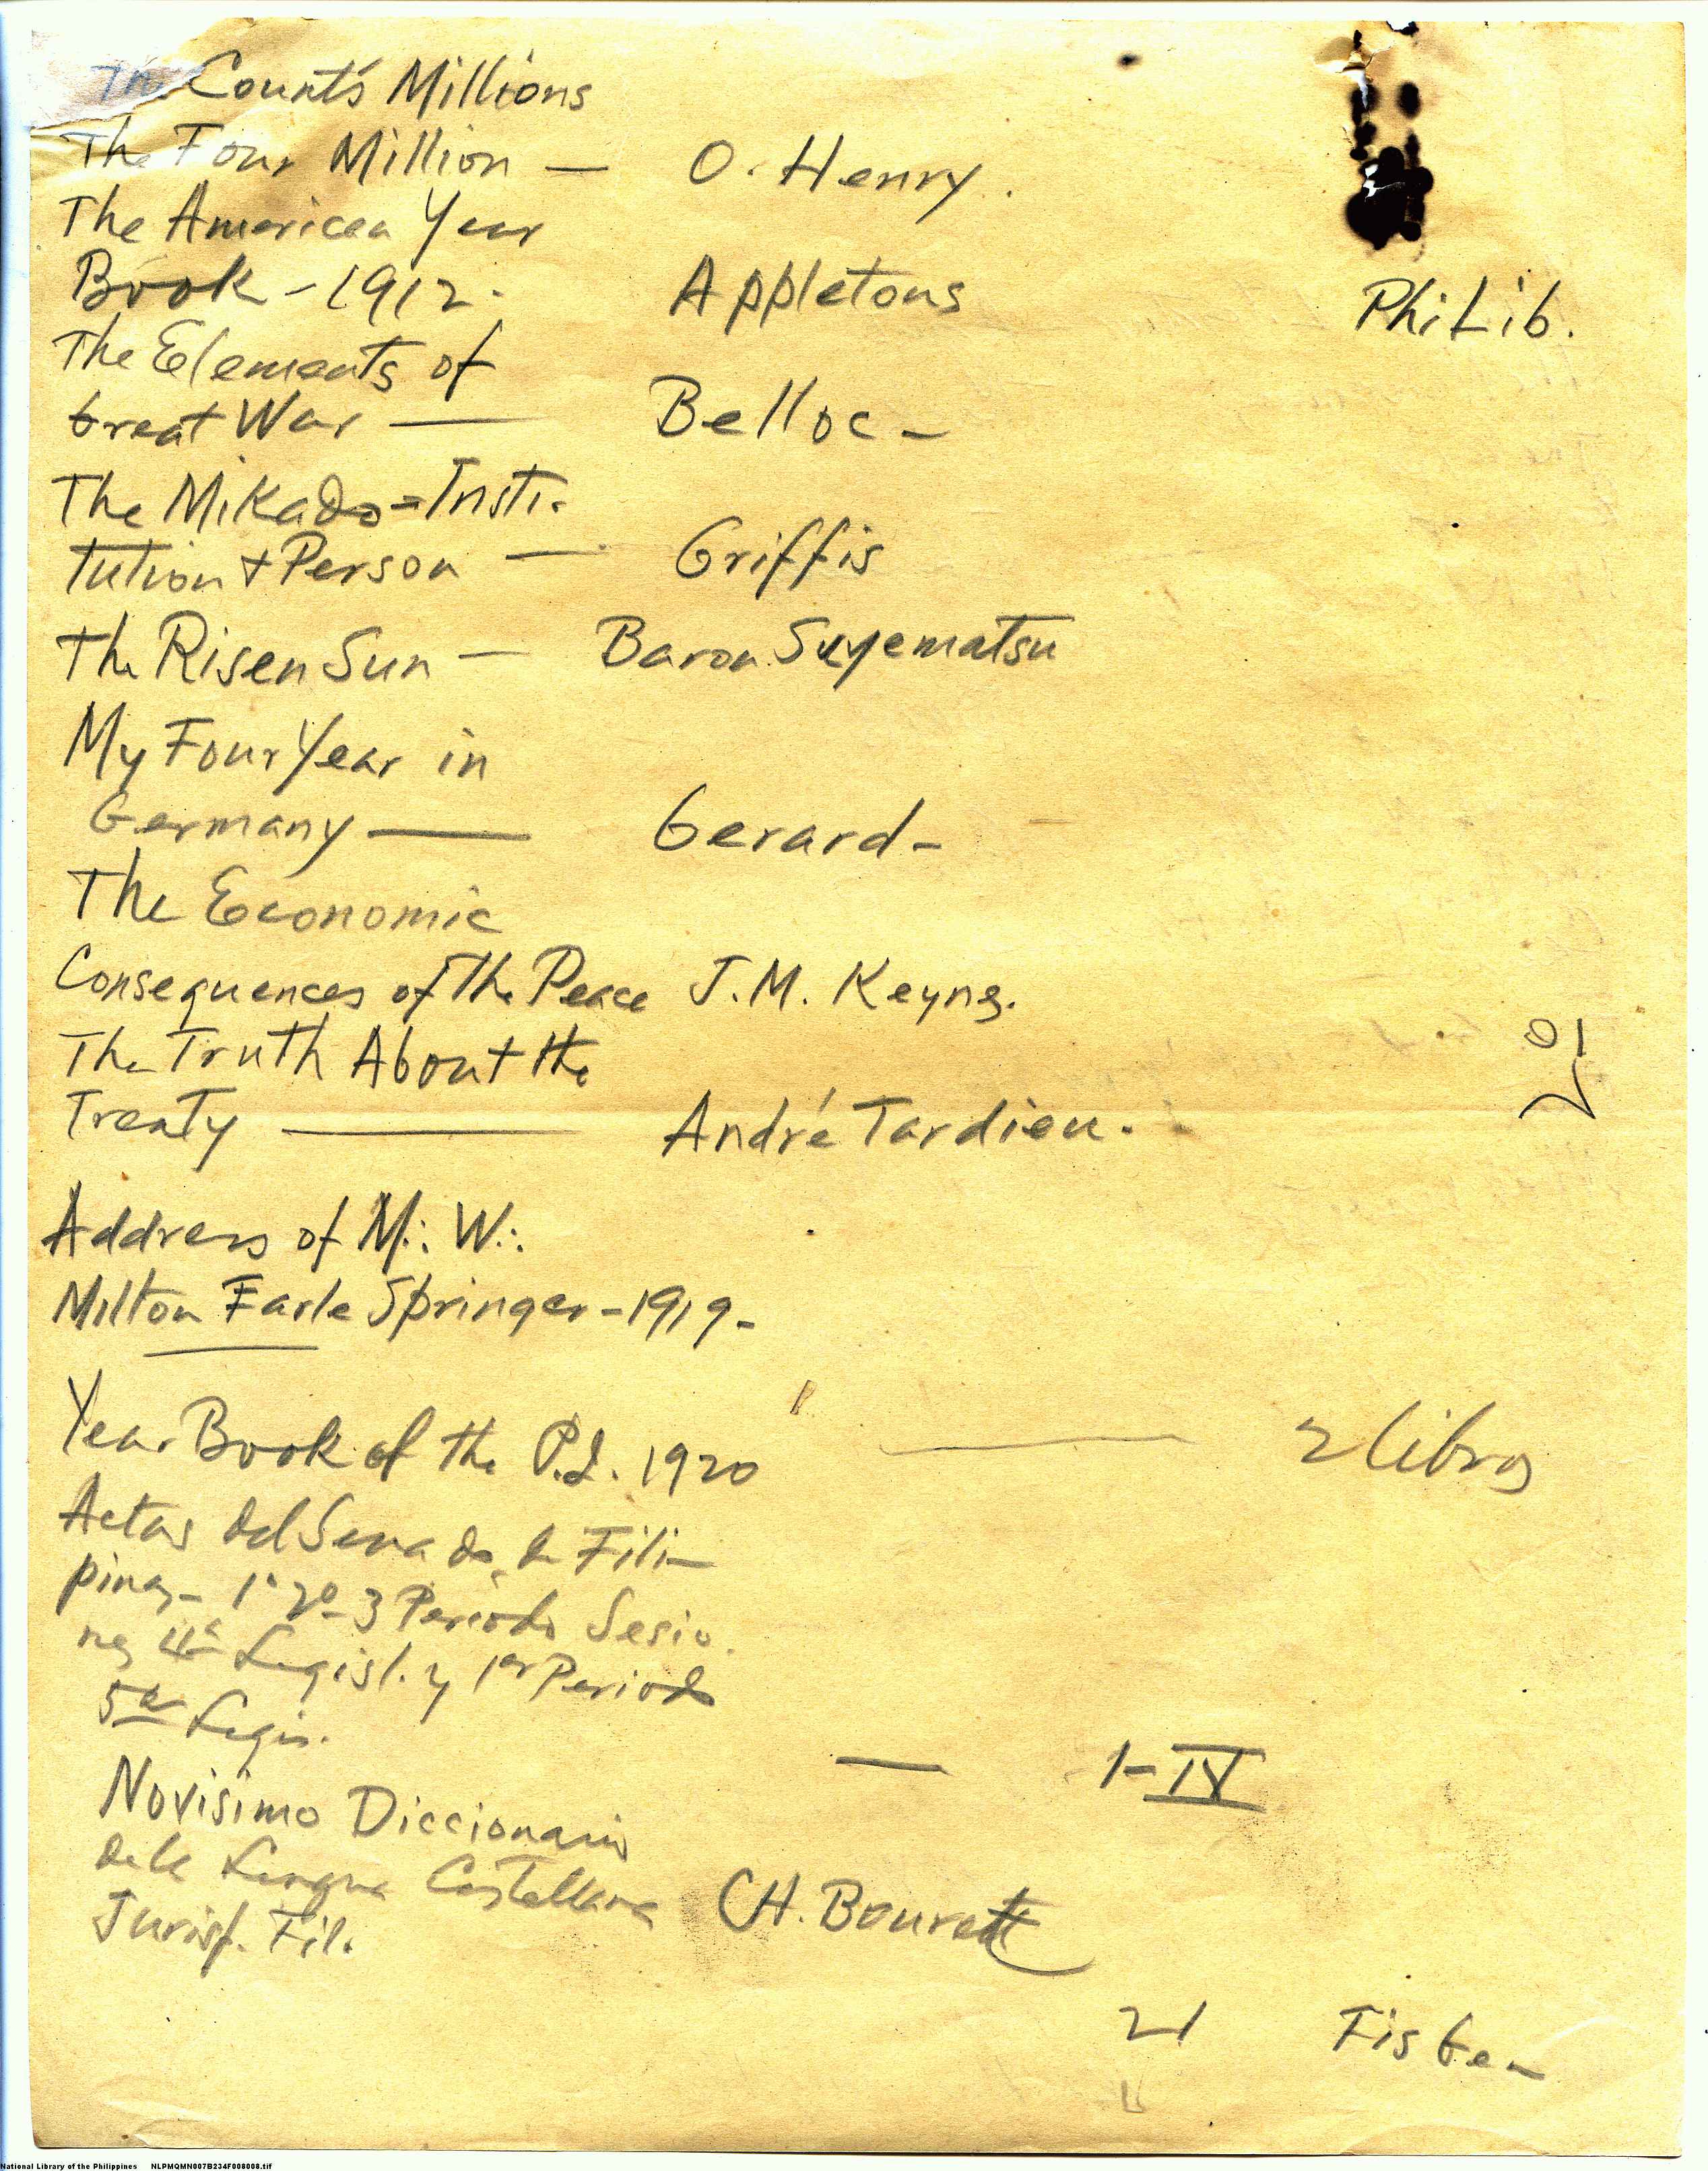 The Count's Millions
The Four Million — O. Henry.
The American Year
Book - 1912. Appletons Phi Lib.
The Elements of
Great War — Belloc -
The Mikado = Insti-
tution & Person — Griffis
The Risen Sun — Baron Suyematsu
My Four Year in
Germany — Gerard -
The Economic
Consequences of the Peace J.M. Keynes.
The Truth About the
Treaty — André Tardieu.
Address of M∴ W∴
Milton Earle Springer - 1919 -
Year Book of the P.I. 1920 — 2 libros
Actas del Senado de Fili-
pinas - 1º 2º - 3 Periodo Sesio-
nes 4ª Legisl. y 1er Periodo
5a Legis. — 1-IV
Novisimo Diccionario
dela Lengua Castellana CH. Bourett
Jurisp. Fil.
21
National Library of the Philippines NLPMQMN007B234F008008.tif